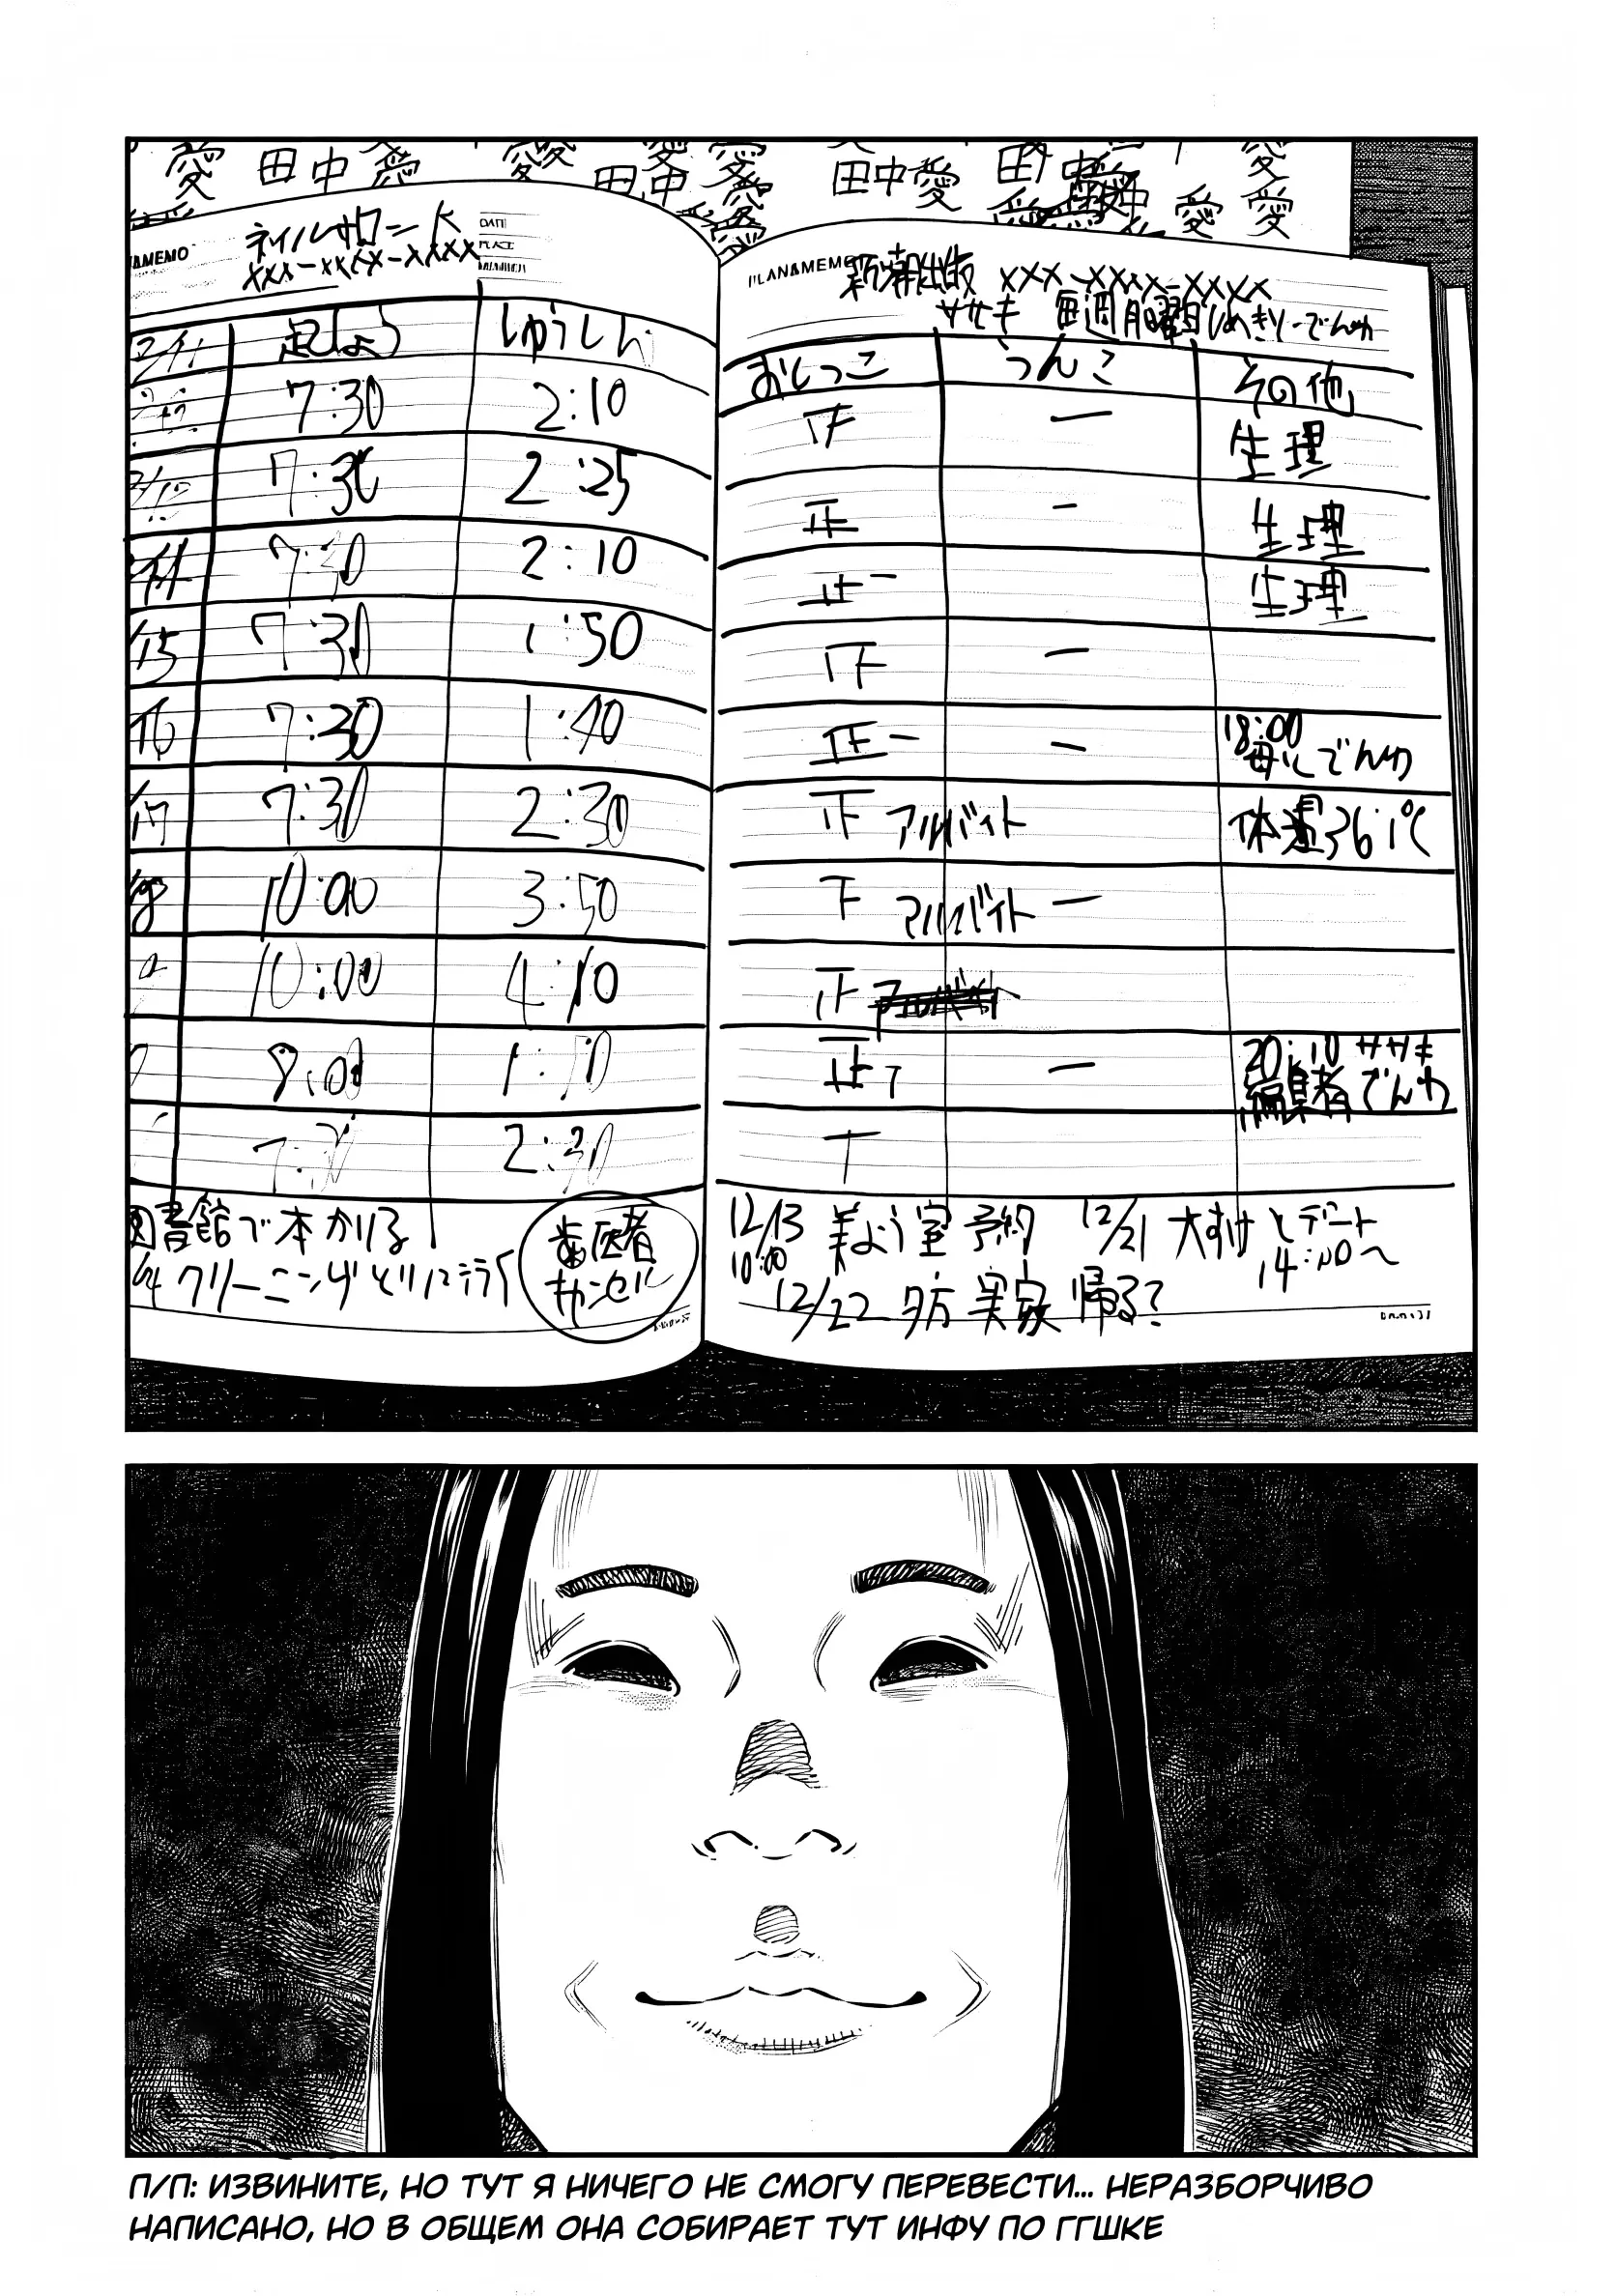 愛 田中 愛 愛 田中 愛 愛 田中愛 田中 愛
愛 愛 愛
&MEMO
ネイルサロン
xxx-xxxx-xxxx
DATE
PLACE
起しょう しゅうしん
7:30 2:10
7:30 2:25
7:30 2:10
/15 7:30 1:50
/16 7:30 1:40
/17 7:30 2:30
10:00 3:50
10:00 4:10
8:00
7:30 2:30
図書館で本かりる
クリーニングとりにいく
歯医者
キャンセル
PLAN&MEMO
新潮出版 xxx-xxxx-xxxx
ササキ 毎週月曜日しめきり-でんわ
おしっこ うんこ その他
正 一 生理
正 一 生理
正一 生理
正 一
正一 一 18:00
母にでんわ
アルバイト 体温36.1℃
下 アルバイト 一
正
正丅 一 20:10 ササキ
編集者でんわ
丅
12/13 美よう室 予約 12/21 大すけとデート
10:00 14:00〜
12/22 夕方 実家 帰る?
П/П: ИЗВИНИТЕ, НО ТУТ Я НИЧЕГО НЕ СМОГУ ПЕРЕВЕСТИ... НЕРАЗБОРЧИВО
НАПИСАНО, НО В ОБЩЕМ ОНА СОБИРАЕТ ТУТ ИНФУ ПО ГГШКЕ